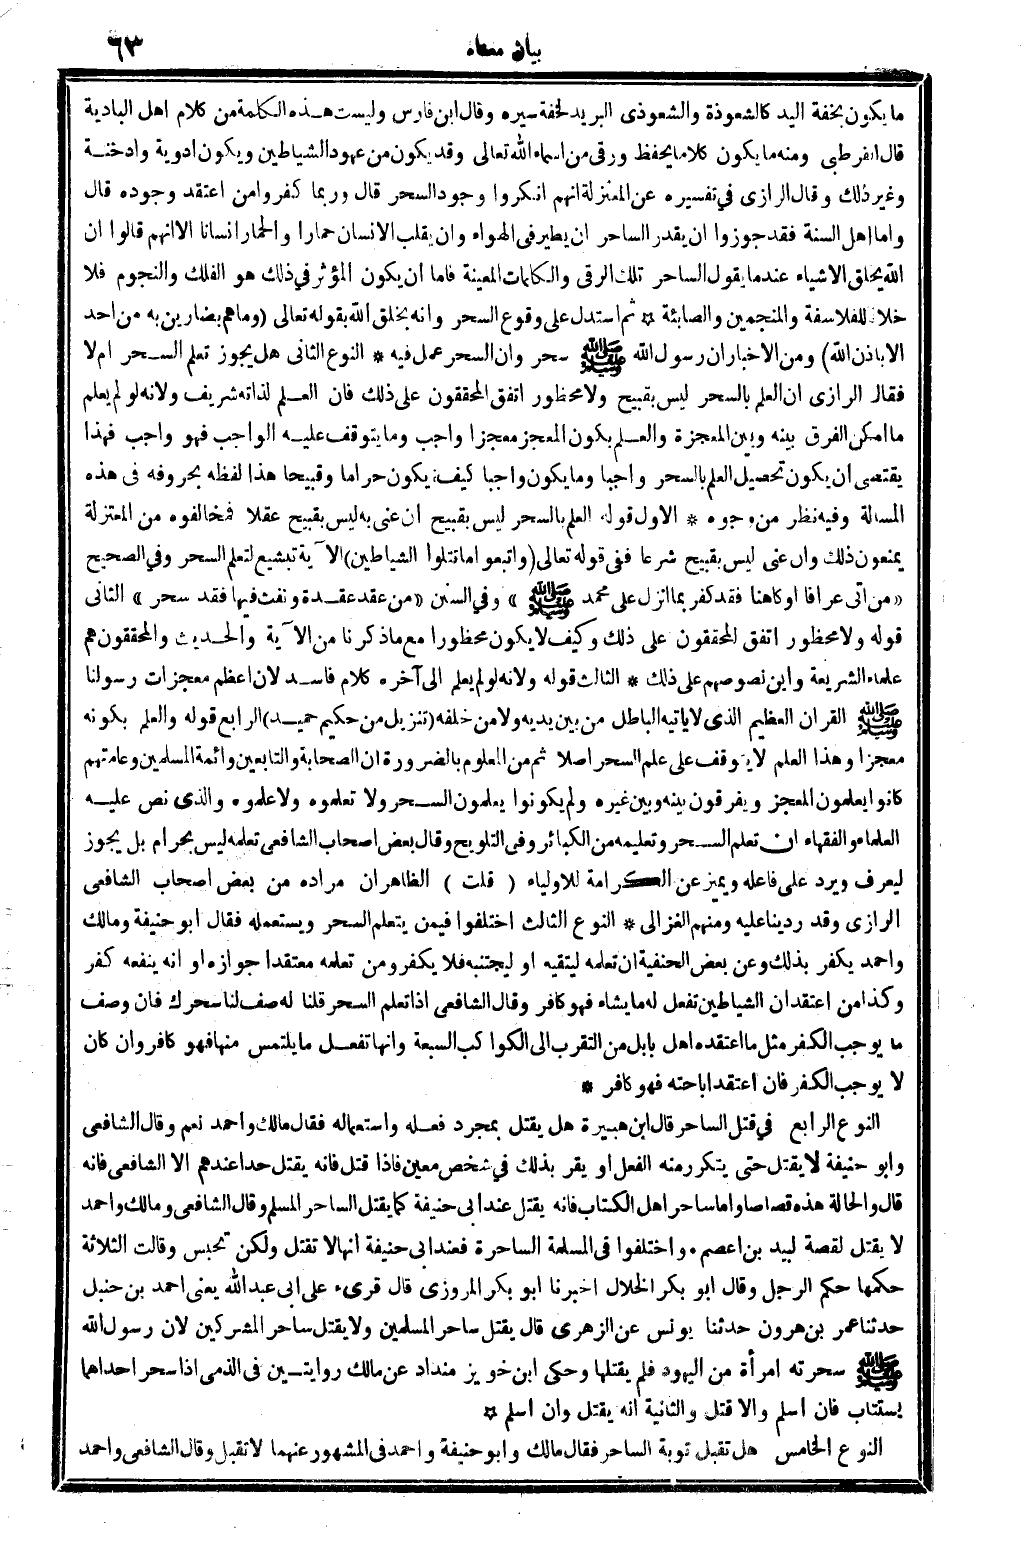 بيان معناه ٦٣
ما يكون بخفة اليد كالشعوذة والشعوذى البريد لخفة سيره وقال ابن فارس وليست هذه الكلمة من كلام اهل البادية
قال القرطبى ومنه ما يكون كلاما يحفظ ورقى من اسماء الله تعالى وقد يكون من عهود الشياطين ويكون ادوية وادخنة
وغير ذلك وقال الرازى فى تفسيره عن المعتزلة انهم انكروا وجود السحر قال وربما كفروا من اعتقد وجوده قال
واما اهل السنة فقد جوزوا ان يقدر الساحر ان يطير فى الهواء وان يقلب الانسان حمارا والحمار انسانا الا انهم قالوا ان
الله يخلق الاشياء عندما يقول الساحر تلك الرقى والكلمات المعينة فاما ان يكون المؤثر فى ذلك هو الفلك والنجوم فلا
خلافا للفلاسفة والمنجمين والصابئة ☆ ثم استدل على وقوع السحر وانه بخلق الله بقوله تعالى (وماهم بضارين به من احد
الا باذن الله) ومن الاخبار ان رسول الله ﷺ سحر وان السحر عمل فيه * النوع الثانى هل يجوز تعلم السحر ام لا
فقال الرازى ان العلم بالسحر ليس بقبيح ولا محظور اتفق المحققون على ذلك فان العلم لذاته شريف ولانه لو لم يعلم
ما امكن الفرق بينه وبين المعجزة والعلم بكون المعجز معجزا واجب وما يتوقف عليه الواجب فهو واجب فهذا
يقتضى ان يكون تحصيل العلم بالسحر واجبا وما يكون واجبا كيف يكون حراما وقبيحا هذا لفظه بحروفه فى هذه
المسالة وفيه نظر من وجوه * الاول قوله العلم بالسحر ليس بقبيح ان عنى به ليس بقبيح عقلا فمخالفوه من المعتزلة
يمنعون ذلك وان عنى ليس بقبيح شرعا ففى قوله تعالى (واتبعوا ما تتلوا الشياطين) الآية تبشيع لتعلم السحر وفى الصحيح
«من آتى عرافا او كاهنا فقد كفر بما انزل على محمد ﷺ» وفى السنن «من عقد عقدة ونفث فيها فقد سحر» الثانى
قوله ولا محظور اتفق المحققون على ذلك وكيف لا يكون محظورا مع ما ذكرنا من الآية والحديث والمحققون هم
علماء الشريعة واين نصوصهم على ذلك * الثالث قوله ولانه لو لم يعلم الى آخره كلام فاسد لان اعظم معجزات رسولنا
ﷺ القران العظيم الذى لا ياتيه الباطل من بين يديه ولا من خلفه (تنزيل من حكيم حميد) الرابع قوله والعلم بكونه
معجزا وهذا العلم لا يتوقف على علم السحر اصلا ثم من المعلوم بالضرورة ان الصحابة والتابعين وائمة المسلمين وعامتهم
كانوا يعلمون المعجز ويفرقون بينه وبين غيره ولم يكونوا يعلمون السحر ولا تعلموه ولا علموه والذى نص عليه
العلماء والفقهاء ان تعلم السحر وتعليمه من الكبائر وفى التلويح وقال بعض اصحاب الشافعى تعلمه ليس بحرام بل يجوز
ليعرف ويرد على فاعله ويميز عن الكرامة للاولياء (قلت) الظاهر ان مراده من بعض اصحاب الشافعى
الرازى وقد رديناعليه ومنهم الغزالى * النوع الثالث اختلفوا فيمن يتعلم السحر ويستعمله فقال ابو حنيفة ومالك
واحمد يكفر بذلك وعن بعض الحنفية ان تعلمه ليتقيه او ليجتنبه فلا يكفر ومن تعلمه معتقدا جوازه او انه ينفعه كفر
وكذا من اعتقد ان الشياطين تفعل له ما يشاء فهو كافر وقال الشافعى اذا تعلم السحر قلنا له صف لنا سحرك فان وصف
ما يوجب الكفر مثل ما اعتقده اهل بابل من التقرب الى الكواكب السبعة وانها تفعل ما يلتمس منها فهو كافر وان كان
لا يوجب الكفر فان اعتقد اباحته فهو كافر *
النوع الرابع فى قتل الساحر قال ابن هبيرة هل يقتل بمجرد فعله واستعماله فقال مالك واحمد نعم وقال الشافعى
وابو حنيفة لا يقتل حتى يتكرر منه الفعل او يقر بذلك فى شخص معين فاذا قتل فانه يقتل حدا عندهم الا الشافعى فانه
قال والحالة هذه قصاصا واما ساحر اهل الكتاب فانه يقتل عند ابى حنيفة كما يقتل الساحر المسلم وقال الشافعى ومالك واحمد
لا يقتل لقصة لبيد بن اعصم ٠ واختلفوا فى المسلمة الساحرة فعند ابى حنيفة انها لا تقتل ولكن تحبس وقالت الثلاثة
حكمها حكم الرجل وقال ابو بكر الخلال اخبرنا ابو بكر المروزى قال قرىء على ابى عبد الله يعنى احمد بن حنبل
حدثنا عمر بن هرون حدثنا يونس عن الزهرى قال يقتل ساحر المسلمين ولا يقتل ساحر المشركين لان رسول الله
ﷺ سحرته امرأة من اليهود فلم يقتلها وحكى ابن خويز منداد عن مالك روايتين فى الذمى اذا سحر احداهما
يستتاب فان اسلم والا قتل والثانية انه يقتل وان اسلم ☆
النوع الخامس هل تقبل توبة الساحر فقال مالك وابو حنيفة واحمد فى المشهور عنهما لا تقبل وقال الشافعى واحمد